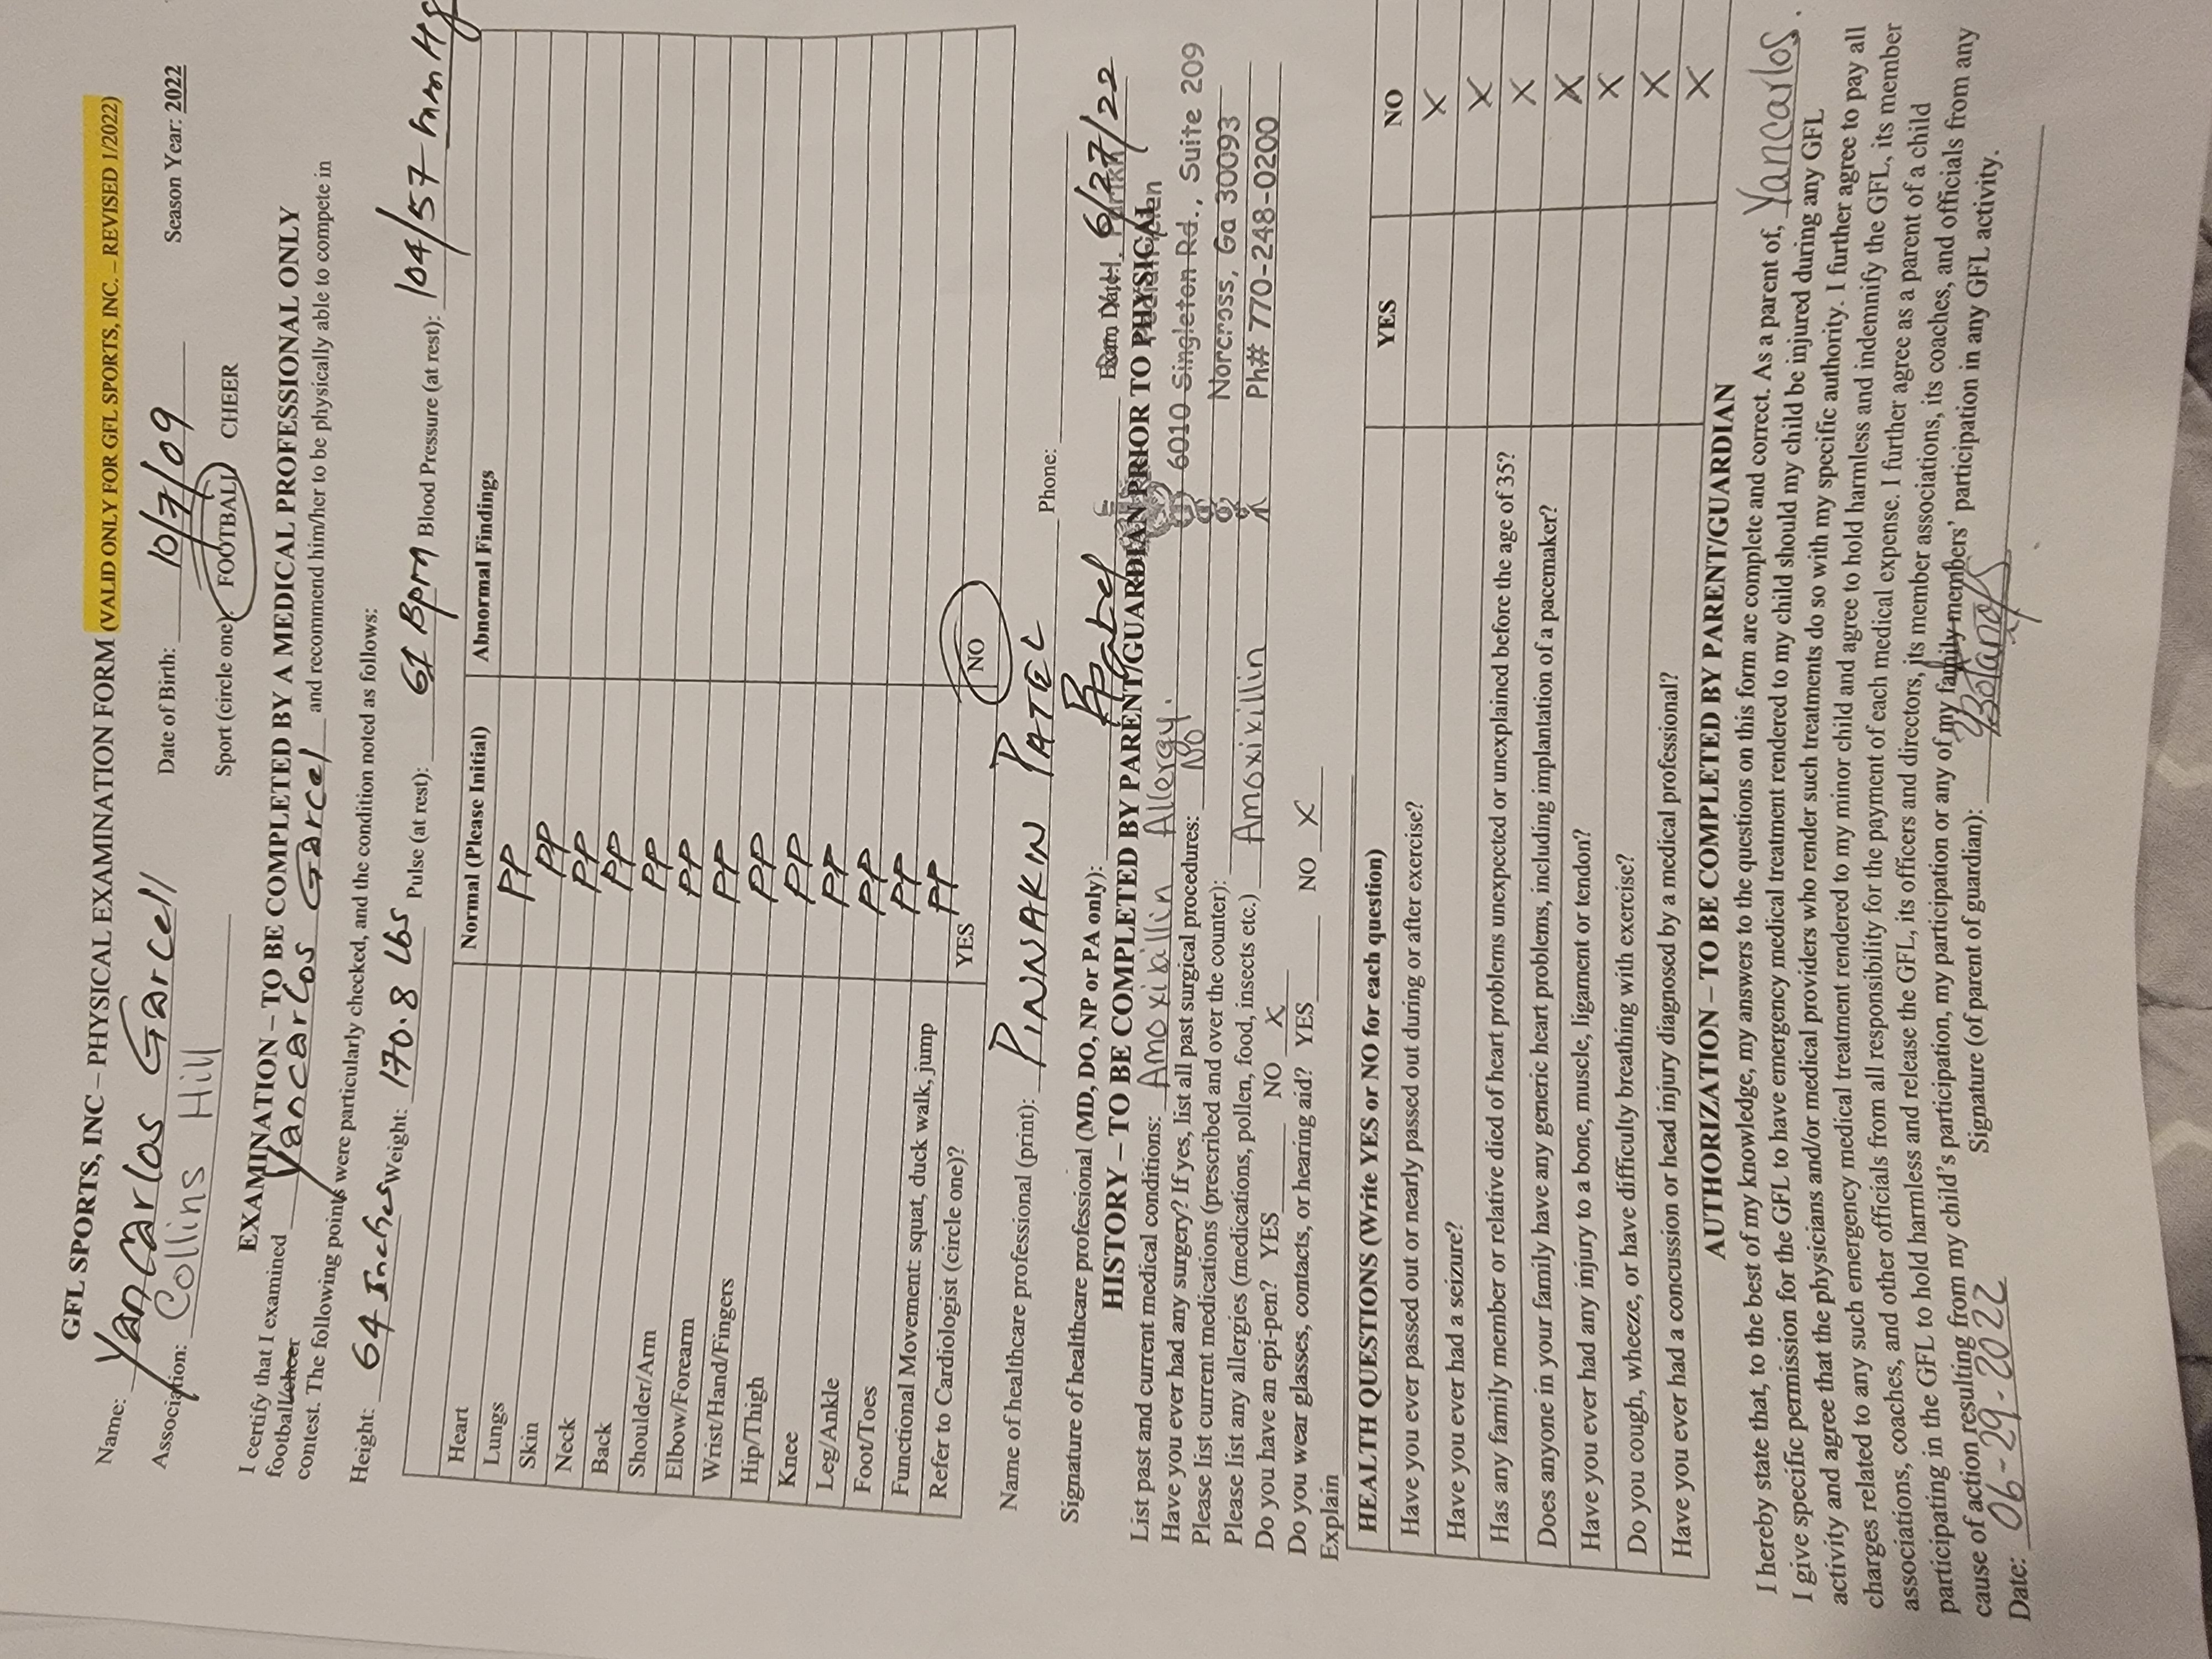 GFL SPORTS, INC – PHYSICAL EXAMINATION FORM (VALID ONLY FOR GFL SPORTS, INC. – REVISED 1/2022)
Name: Yancarlos Garcell Date of Birth: 10/7/09 Season Year: 2022
Association: Collins Hill Sport (circle one): FOOTBALL CHEER
EXAMINATION – TO BE COMPLETED BY A MEDICAL PROFESSIONAL ONLY
I certify that I examined Yancarlos Garcel and recommend him/her to be physically able to compete in
football/cheer
contest. The following points were particularly checked, and the condition noted as follows:
Height: 64 Inches Weight: 170.8 Lbs Pulse (at rest): 61 Bpm Blood Pressure (at rest): 104/57 mmHg
Normal (Please Initial) Abnormal Findings
Heart PP
Lungs PP
Skin PP
Neck PP
Back PP
Shoulder/Arm PP
Elbow/Forearm PP
Wrist/Hand/Fingers PP
Hip/Thigh PP
Knee PP
Leg/Ankle PP
Foot/Toes PP
Functional Movement: squat, duck walk, jump PP
Refer to Cardiologist (circle one)? YES NO
Name of healthcare professional (print): PINNAKIN PATEL Phone:
Signature of healthcare professional (MD, DO, NP or PA only): Ppatel Exam Date: 6/27/22
HISTORY – TO BE COMPLETED BY PARENT/GUARDIAN PRIOR TO PHYSICAL
List past and current medical conditions: Amoxibillin Allergy.
6010 Singleton Rd., Suite 209
Have you ever had any surgery? If yes, list all past surgical procedures: No.
Norcross, Ga 30093
Please list current medications (prescribed and over the counter):
Ph# 770-248-0200
Please list any allergies (medications, pollen, food, insects etc.) Amoxixillin
Do you have an epi-pen? YES NO X
Do you wear glasses, contacts, or hearing aid? YES NO X
Explain
HEALTH QUESTIONS (Write YES or NO for each question) YES NO
Have you ever passed out or nearly passed out during or after exercise? X
Have you ever had a seizure? X
Has any family member or relative died of heart problems unexpected or unexplained before the age of 35? X
Does anyone in your family have any generic heart problems, including implantation of a pacemaker? X
Have you ever had any injury to a bone, muscle, ligament or tendon? X
Do you cough, wheeze, or have difficulty breathing with exercise? X
Have you ever had a concussion or head injury diagnosed by a medical professional? X
AUTHORIZATION – TO BE COMPLETED BY PARENT/GUARDIAN
I hereby state that, to the best of my knowledge, my answers to the questions on this form are complete and correct. As a parent of, Yancarlos.
I give specific permission for the GFL to have emergency medical treatment rendered to my child should my child be injured during any GFL
activity and agree that the physicians and/or medical providers who render such treatments do so with my specific authority. I further agree to pay all
charges related to any such emergency medical treatment rendered to my minor child and agree to hold harmless and indemnify the GFL, its member
associations, coaches, and other officials from all responsibility for the payment of each medical expense. I further agree as a parent of a child
participating in the GFL to hold harmless and release the GFL, its officers and directors, its member associations, its coaches, and officials from any
cause of action resulting from my child's participation, my participation or any of my family members' participation in any GFL activity.
Date: 06-29-2022 Signature (of parent of guardian):